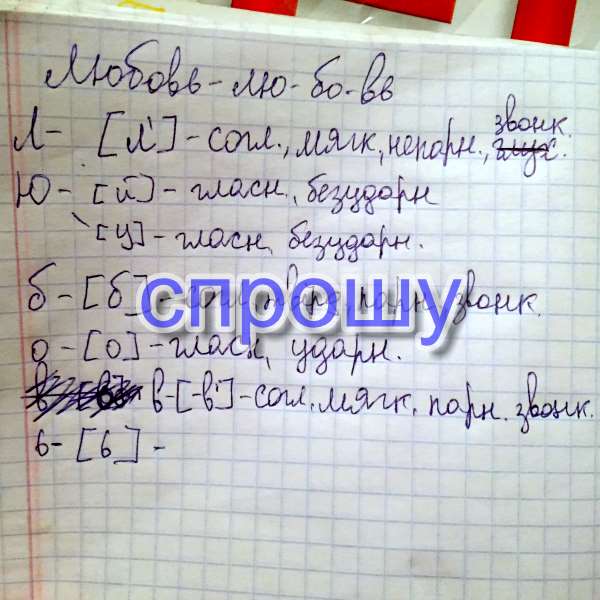 Любовь-лю-бо-вь
звонк.
Л- [л'] - согл., мягк, непарн., глух.
Ю - [й] - гласн., безударн
[у] - гласн, безударн.
б - [б] - согл, тверд, парн. звонк.
спрошу
о - [о] - гласн, ударн.
в-[-в'] - согл. мягк. парн. звонк.
ь- [ь] -